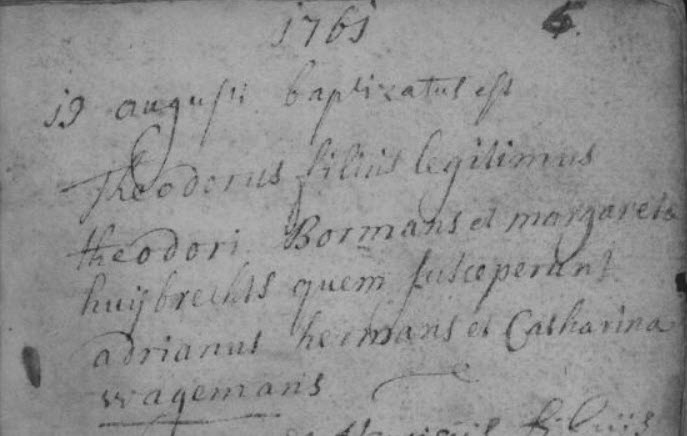 1761 6.
19 augusti baptizatus est
Theodorus filius legitimus
theodori Bormans et margareta
huijbrechts quem susceperunt
adrianus hermans et Catharina
wagemans
filius